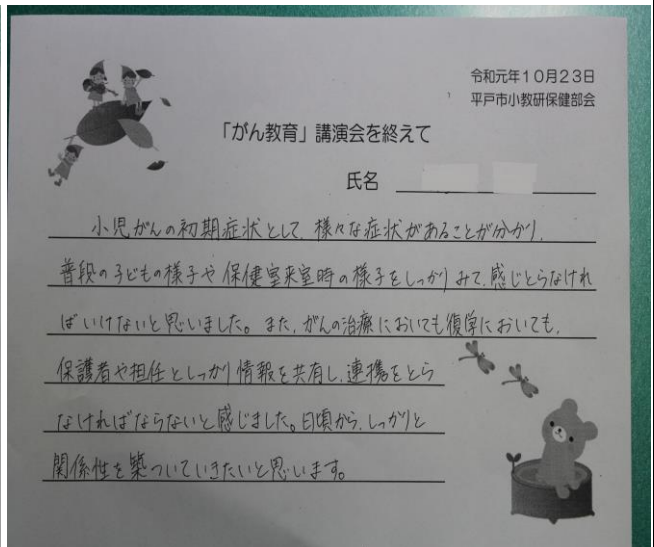 令和元年10月23日
平戸市小教研保健部会
「がん教育」講演会を終えて
氏名
小児がんの初期症状として、様々な症状があることが分かり、
普段の子どもの様子や保健室来室時の様子をしっかりみて、感じとらなけれ
ばいけないと思いました。また、がんの治療においても復学においても、
保護者や担任としっかり情報を共有し、連携をとら
なければならないと感じました。日頃から、しっかりと
関係性を築ついていきたいと思います。